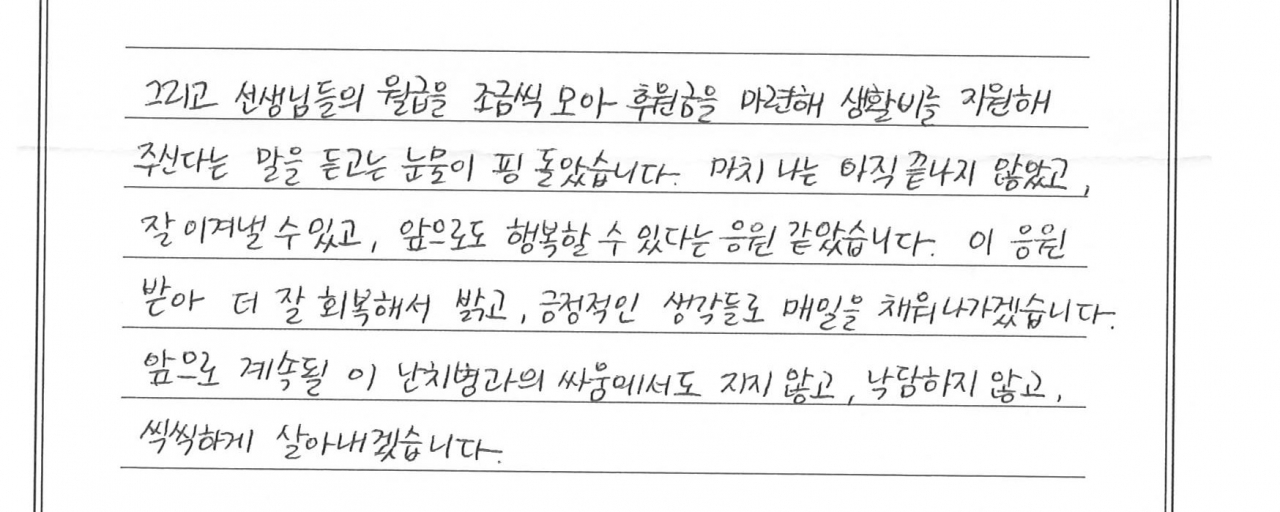 그리고 선생님들의 월급을 조금씩 모아 후원금을 마련해 생활비를 지원해
주신다는 말을 듣고는 눈물이 핑 돌았습니다. 마치 나는 아직 끝나지 않았고,
잘 이겨낼 수 있고, 앞으로도 행복할 수 있다는 응원 같았습니다. 이 응원
받아 더 잘 회복해서 밝고, 긍정적인 생각들로 매일을 채워나가겠습니다.
앞으로 계속될 이 난치병과의 싸움에서도 지지 않고, 낙담하지 않고,
씩씩하게 살아내겠습니다.